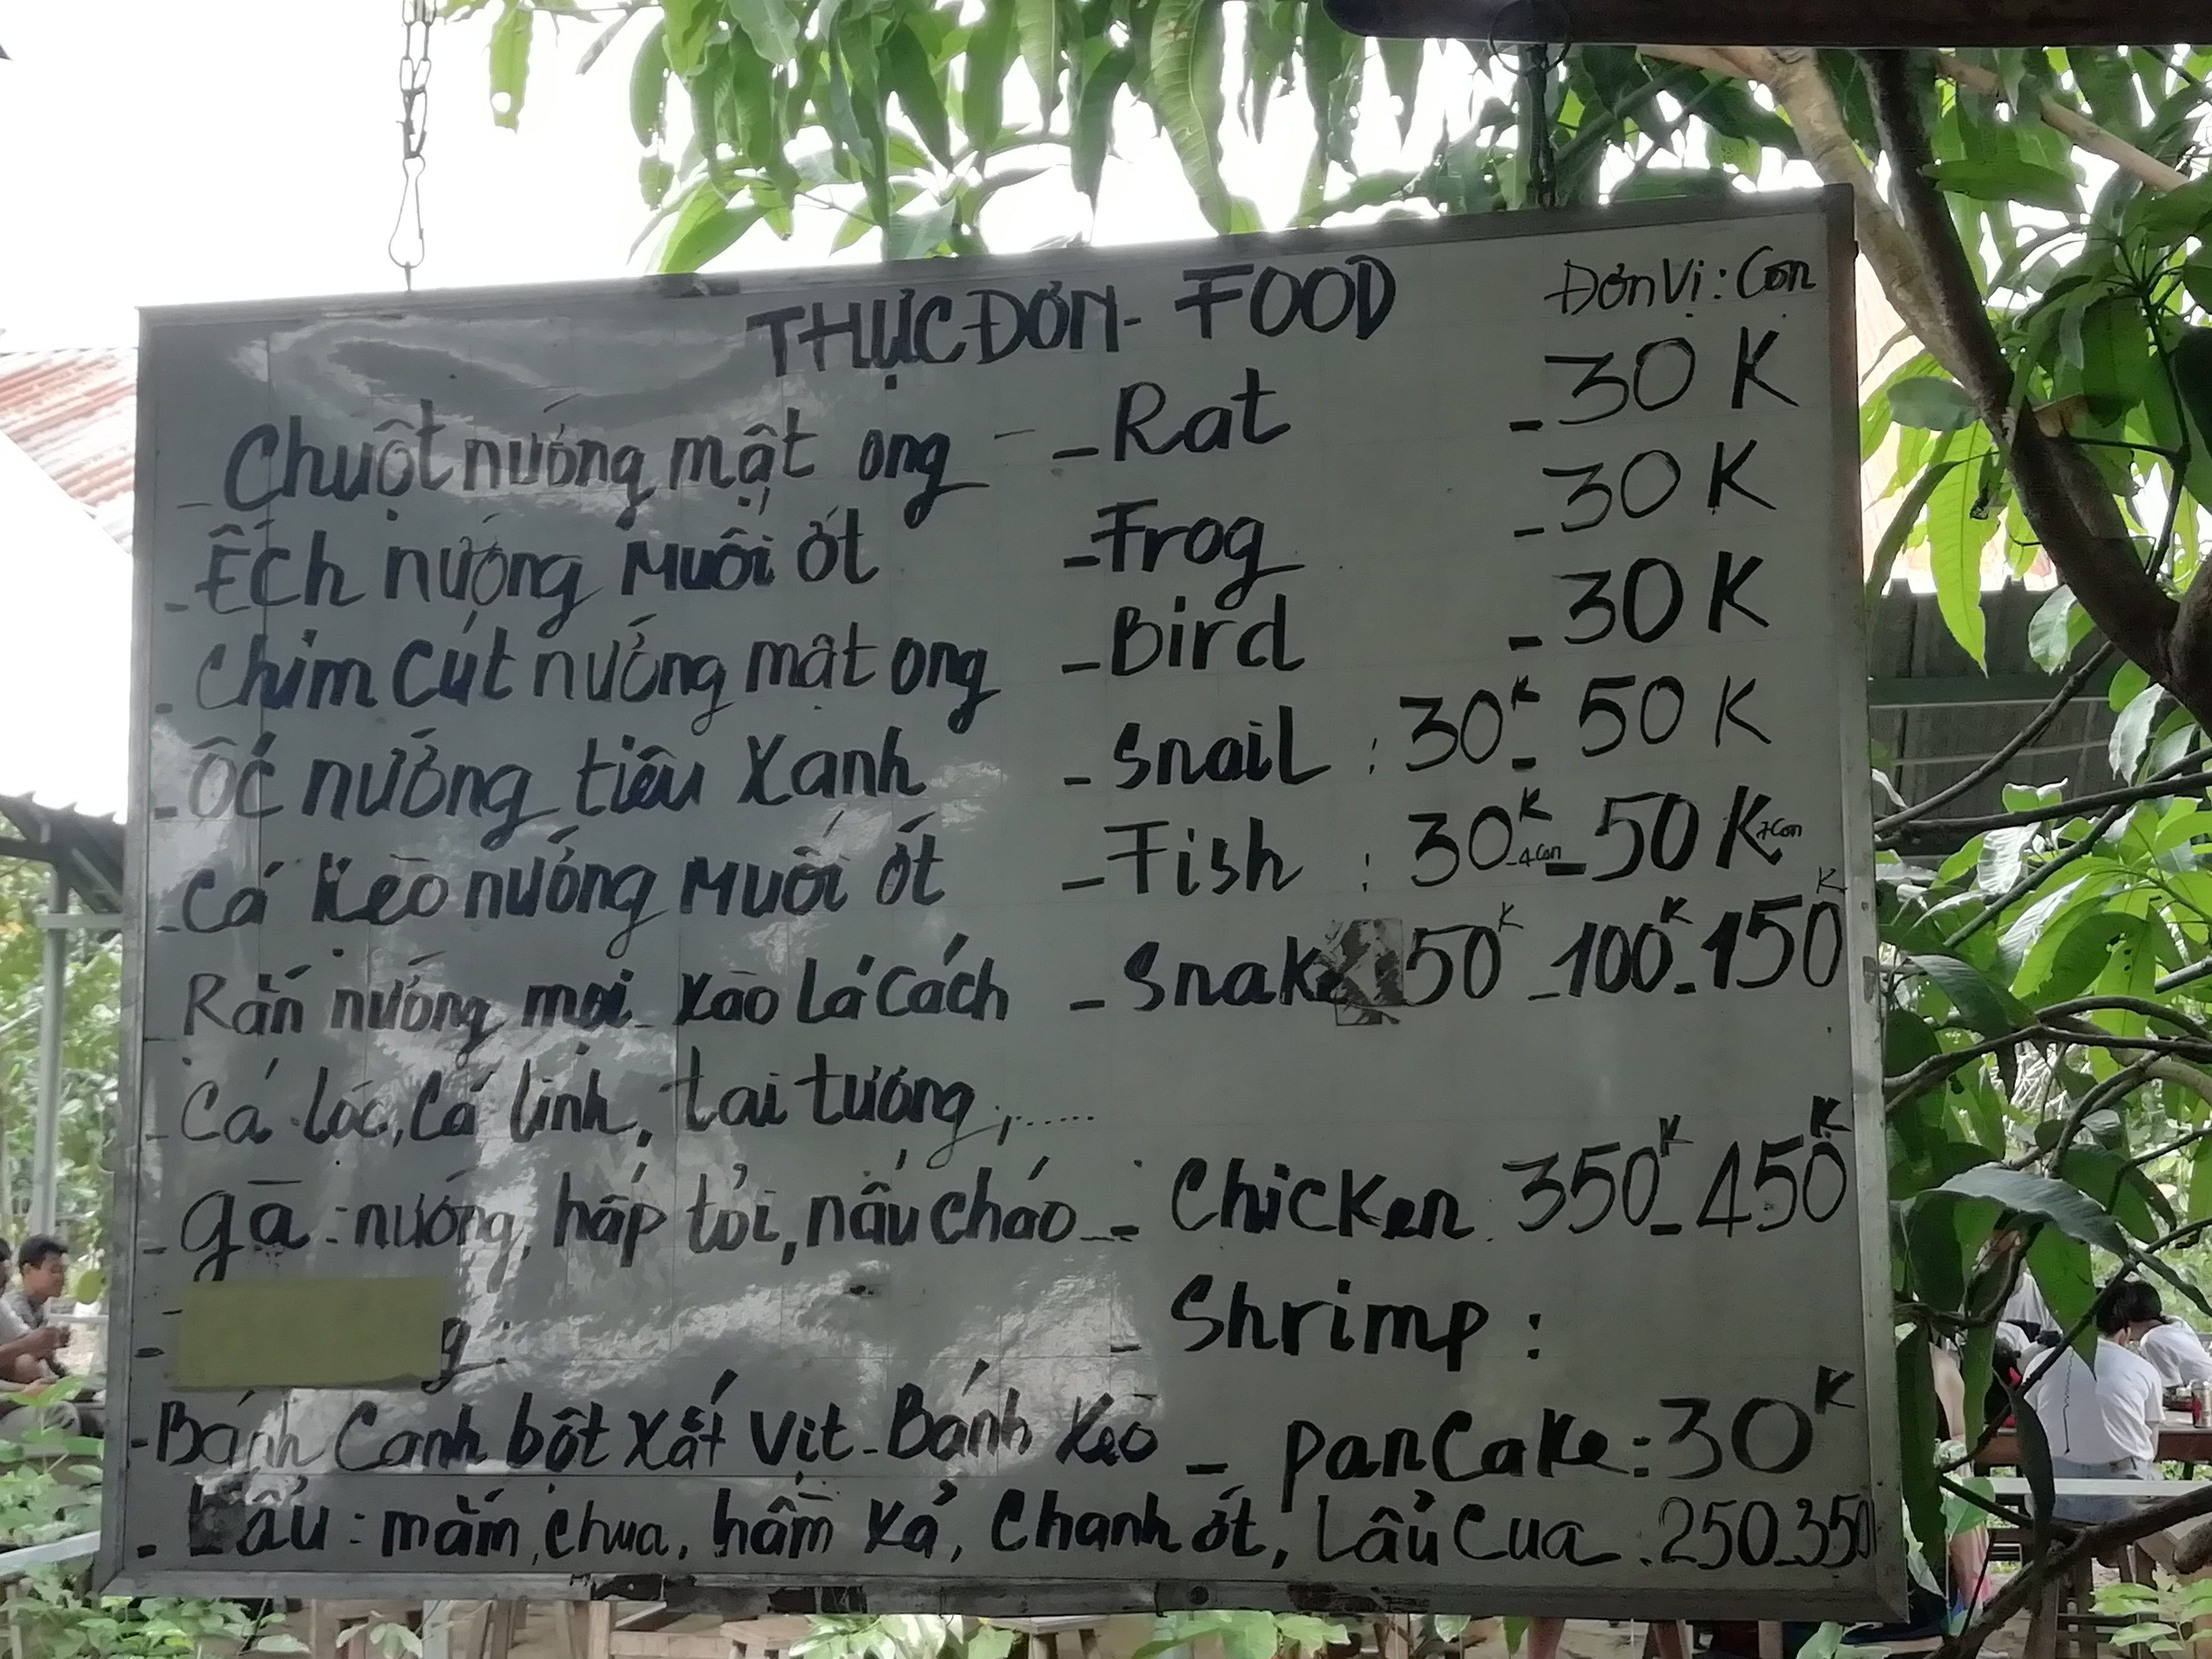 THỰC ĐƠN - FOOD Đơn Vị: Con
- Chuột nướng mật ong - - Rat - 30 K
- Ếch nướng Muối ớt - Frog - 30 K
- Chim Cút nướng mật ong - Bird - 30 K
- Ốc nướng tiêu Xanh - Snail : 30K - 50 K
- Cá Kèo nướng Muối ớt - Fish : 30K -4 Con - 50 K 7 Con
Rắn nướng mọi - Xào Lá Cách - Snake 50K - 100K - 150K
- Cá lóc, Cá linh, tai tượng, .....
- gà : nướng, hấp tỏi, nấu cháo - - Chicken : 350K - 450K
- g: - Shrimp :
- Bánh Canh bột Xắt Vịt - Bánh Xèo - panCake : 30K
- Lẩu : mắm, chua, hầm Xả, Chanh ớt, Lẩu Cua : 250-350